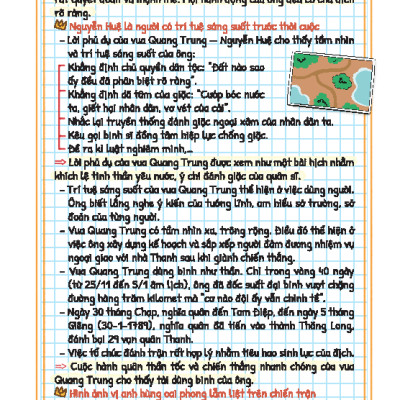 rõ ràng.
Nguyễn Huệ là người có trí tuệ sáng suốt trước thời cuộc
– Lời phủ dụ của vua Quang Trung – Nguyễn Huệ cho thấy tầm nhìn
và trí tuệ sáng suốt của ông:
Khẳng định chủ quyền dân tộc: "Đất nào sao
ấy đều đã phân biệt rõ ràng".
Khẳng định dã tâm của giặc: "Cướp bóc nước
ta, giết hại nhân dân, vơ vét của cải".
Nhắc lại truyền thống đánh giặc ngoại xâm của nhân dân ta.
Kêu gọi binh sĩ đồng tâm hiệp lực chống giặc.
Đề ra kỉ luật nghiêm minh,...
⇒ Lời phủ dụ của vua Quang Trung được xem như một bài hịch nhằm
khích lệ tinh thần yêu nước, ý chí đánh giặc của quân sĩ.
– Trí tuệ sáng suốt của vua Quang Trung thể hiện ở việc dùng người.
Ông biết lắng nghe ý kiến của tướng lĩnh, am hiểu sở trường, sở
đoản của từng người.
– Vua Quang Trung có tầm nhìn xa, trông rộng. Điều đó thể hiện ở
việc ông xây dựng kế hoạch và sắp xếp người đảm đương nhiệm vụ
ngoại giao với nhà Thanh sau khi giành chiến thắng.
– Vua Quang Trung dùng binh như thần. Chỉ trong vòng 40 ngày
(từ 25/11 đến 5/1 âm lịch), ông đã đốc suất đại binh vượt chặng
đường hàng trăm kilomet mà "cơ nào đội ấy vẫn chỉnh tề".
– Ngày 30 tháng Chạp, nghĩa quân đến Tam Điệp, đến ngày 5 tháng
Giêng (30-1-1789), nghĩa quân đã tiến vào thành Thăng Long,
đánh bại 29 vạn quân Thanh.
– Việc tổ chức đánh trận rất hợp lý nhằm tiêu hao sinh lực của địch.
⇒ Cuộc hành quân thần tốc và chiến thắng nhanh chóng của vua
Quang Trung cho thấy tài dùng binh của ông.
Hình ảnh vị anh hùng oai phong lẫm liệt trên chiến trận